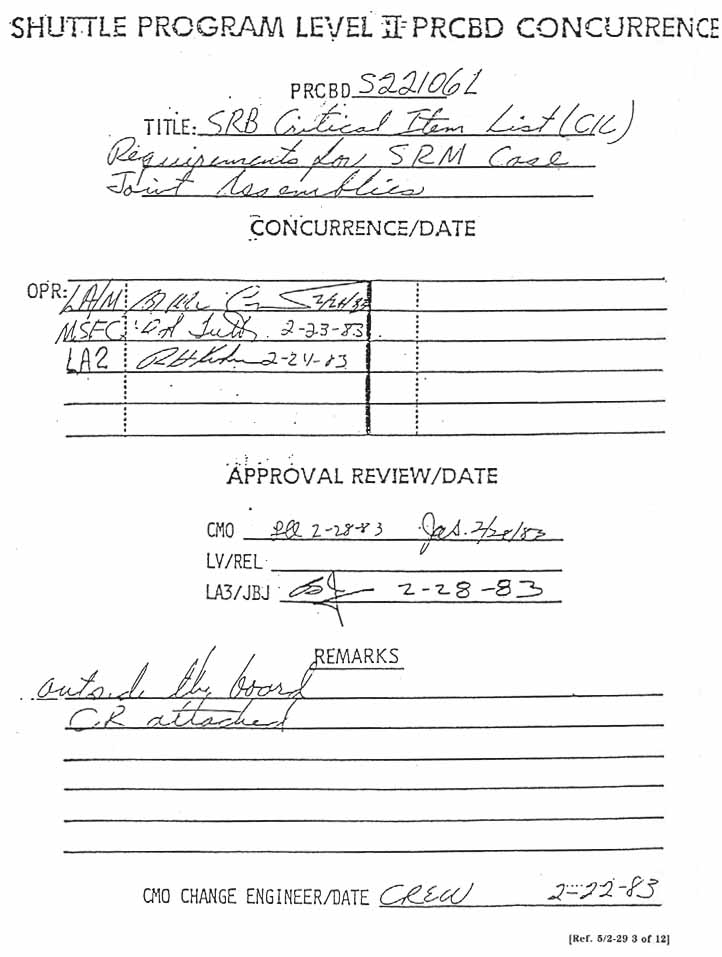 SHUTTLE PROGRAM LEVEL II PRCBD CONCURRENCE
PRCBD S22106L
TITLE: SRB Critical Item List (CIL)
Requirements for SRM Case
Joint Assemblies
CONCURRENCE/DATE
OPR: LA/M 2/24/83
MSFC 2-23-83
LA2 2-24-83
APPROVAL REVIEW/DATE
CMO 2-28-83 2/28/83
LV/REL
LA3/JBJ 2-28-83
REMARKS
outside the board
CR attached
CMO CHANGE ENGINEER/DATE CREW 2-22-83
[Ref. 5/2-29 3 of 12]